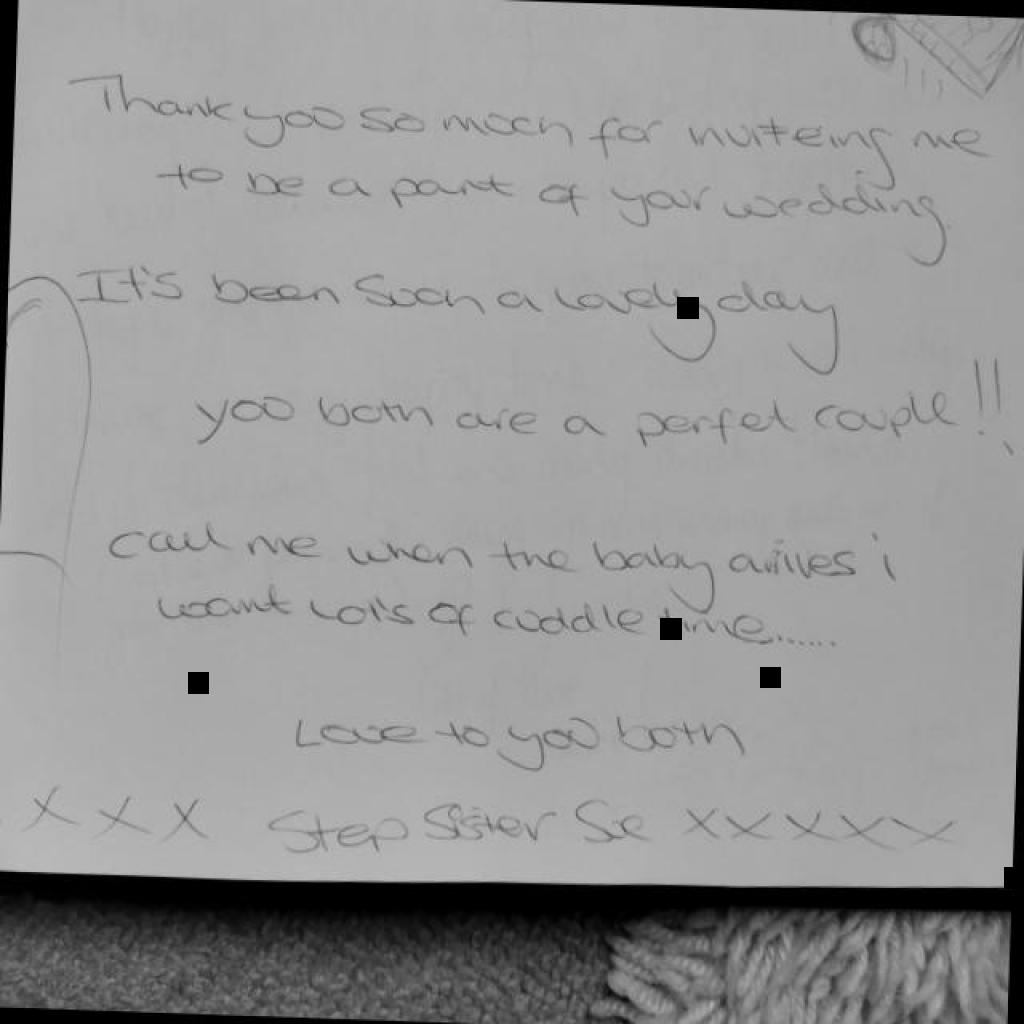 Thank you so much for inviteing me
to be a part of your wedding
It's been such a lovely day
you both are a perfet couple!!
call me when the baby arrives i
want lots of cuddle time......
Love to you both
X X X Step Sister Sue X X X X X